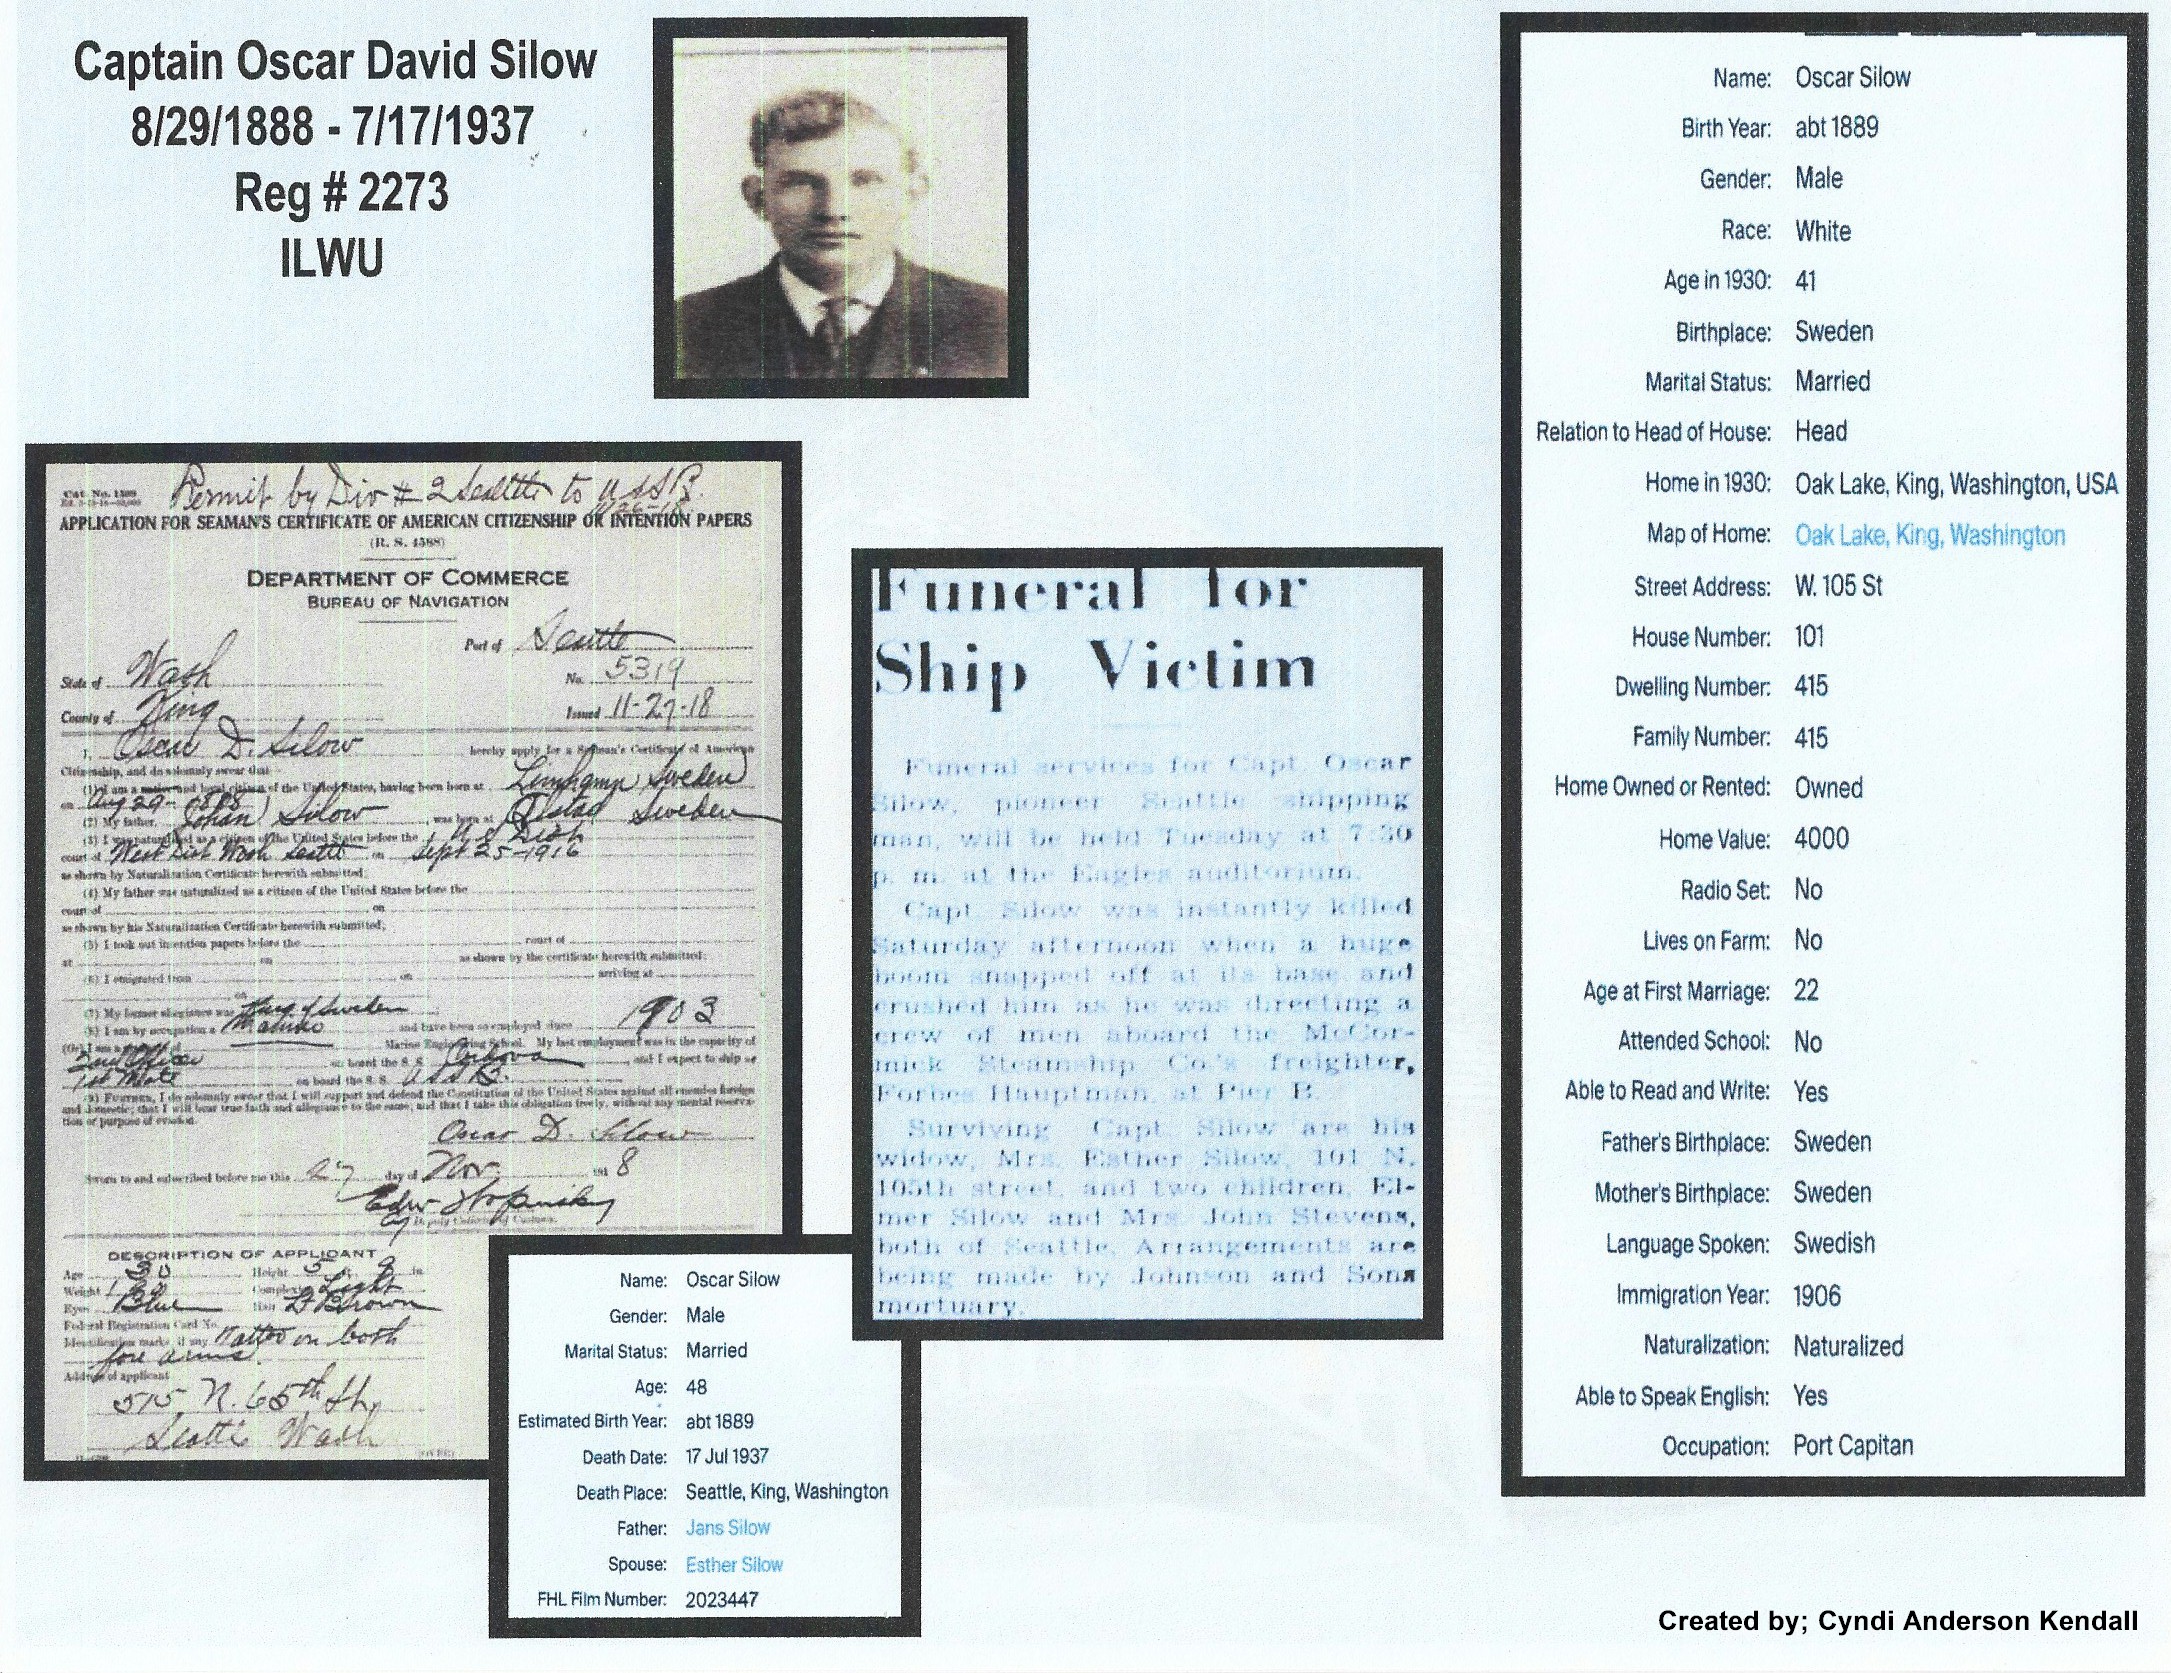 Captain Oscar David Silow
8/29/1888 - 7/17/1937
Reg # 2273
ILWU
Permit by Div # 2 Seattle to USSB.
Cat. No. 1509
APPLICATION FOR SEAMAN'S CERTIFICATE OF AMERICAN CITIZENSHIP OR INTENTION PAPERS
(R. S. 4588)
DEPARTMENT OF COMMERCE
BUREAU OF NAVIGATION
Port of Seattle
State of Wash
No. 5319
County of King
Issued 11-27-18
I, Oscar D. Silow, hereby apply for a Seaman's Certificate of American
Citizenship, and do solemnly swear that
(1) I am a native and loyal citizen of the United States, having been born at Limhamn Sweden
on Aug 29-1888
(2) My father, Johan Silow, was born at Sweden
(3) I was naturalized as a citizen of the United States before the U S Dist
court of West Dist Wash Seattle on Sept 25-1916
as shown by Naturalization Certificate herewith submitted;
(4) My father was naturalized as a citizen of the United States before the
court of on
as shown by his Naturalization Certificate herewith submitted;
(5) I took out intention papers before the court of
at on as shown by the certificate herewith submitted;
(6) I emigrated from on arriving at
on
(7) My former allegiance was King of Sweden
(8) I am by occupation a Mariner and have been so employed since 1903
(Or) I am a Marine Engineering School. My last employment was in the capacity of
2nd Officer on board the S. S. Cordova, and I expect to ship as
1st Mate on board the S. S. USSB.
(9) FURTHER, I do solemnly swear that I will support and defend the Constitution of the United States against all enemies foreign
and domestic; that I will bear true faith and allegiance to the same; and that I take this obligation freely, without any mental reserva-
tion or purpose of evasion.
Oscar D. Silow
Sworn to and subscribed before me this 27 day of Nov. 1918
Deputy Collector of Customs.
DESCRIPTION OF APPLICANT
Age 30 Height 5 ft. 9 in.
Weight Complexion Light
Eyes Blue Hair Lt Brown
Federal Registration Card No.
Identification marks, if any Tattoo on both
fore arms.
Address of applicant
515 N. 65th St,
Seattle Wash
Name: Oscar Silow
Gender: Male
Marital Status: Married
Age: 48
Estimated Birth Year: abt 1889
Death Date: 17 Jul 1937
Death Place: Seattle, King, Washington
Father: Jans Silow
Spouse: Esther Silow
FHL Film Number: 2023447
Funeral for
Ship Victim
Funeral services for Capt. Oscar
Silow, pioneer Seattle shipping
man, will be held Tuesday at 7:30
p. m. at the Eagles auditorium.
Capt. Silow was instantly killed
Saturday afternoon when a huge
boom snapped off at its base and
crushed him as he was directing a
crew of men aboard the McCor-
mick Steamship Co.'s freighter,
Forbes Hauptman, at Pier B.
Surviving Capt. Silow are his
widow, Mrs. Esther Silow, 101 N.
105th street, and two children, El-
mer Silow and Mrs. John Stevens,
both of Seattle. Arrangements are
being made by Johnson and Sons
mortuary.
Name: Oscar Silow
Birth Year: abt 1889
Gender: Male
Race: White
Age in 1930: 41
Birthplace: Sweden
Marital Status: Married
Relation to Head of House: Head
Home in 1930: Oak Lake, King, Washington, USA
Map of Home: Oak Lake, King, Washington
Street Address: W. 105 St
House Number: 101
Dwelling Number: 415
Family Number: 415
Home Owned or Rented: Owned
Home Value: 4000
Radio Set: No
Lives on Farm: No
Age at First Marriage: 22
Attended School: No
Able to Read and Write: Yes
Father's Birthplace: Sweden
Mother's Birthplace: Sweden
Language Spoken: Swedish
Immigration Year: 1906
Naturalization: Naturalized
Able to Speak English: Yes
Occupation: Port Capitan
Created by; Cyndi Anderson Kendall